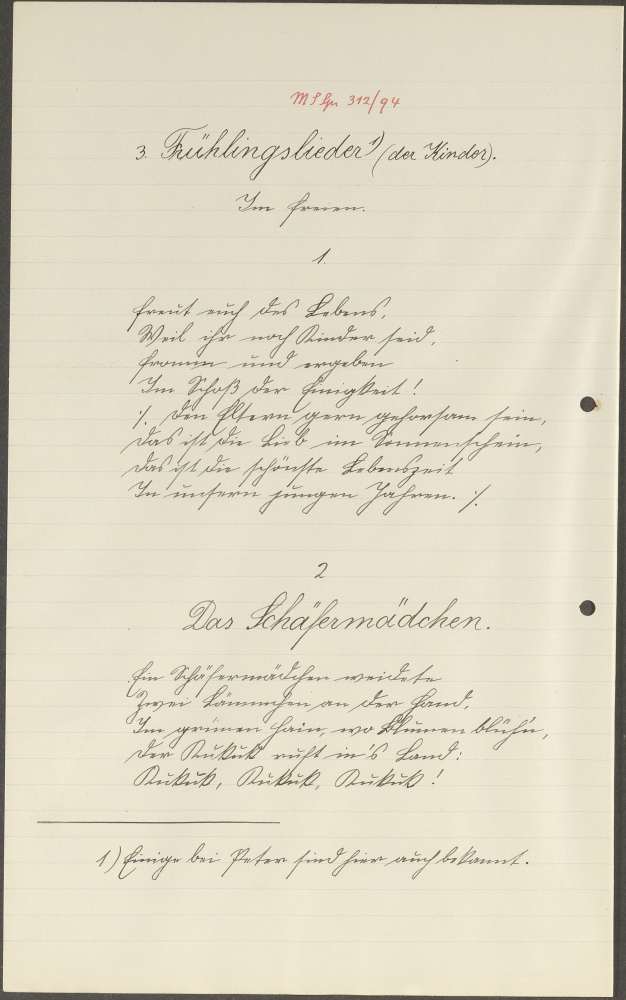 MS Gr 312/94
3. Frühlingslieder¹) (der Kinder).
Im Freien.
1.
Freut euch des Lebens,
Weil ihr noch Kinder seid,
Fromm und ergeben
Im Schoß der Einigkeit!
:/. Den Eltern gern gehorsam sein,
Das ist die Lieb im Sonnenschein,
Das ist die schönste Lebenszeit
In unsern jungen Jahren. :/.
2
Das Schäfermädchen.
Ein Schäfermädchen weidete
Zwei Lämmchen an der Hand,
Im grünen Hain, wo Blumen blüh'n,
Der Kukuk ruft in's Land:
Kukuk, Kukuk, Kukuk!
1) Einige bei Peter sind hier auch bekannt.